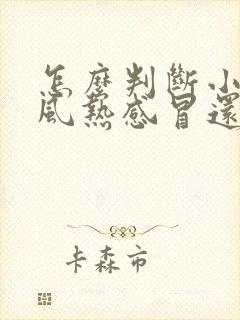 怎麼判斷小
風熱感冒還
卡森市